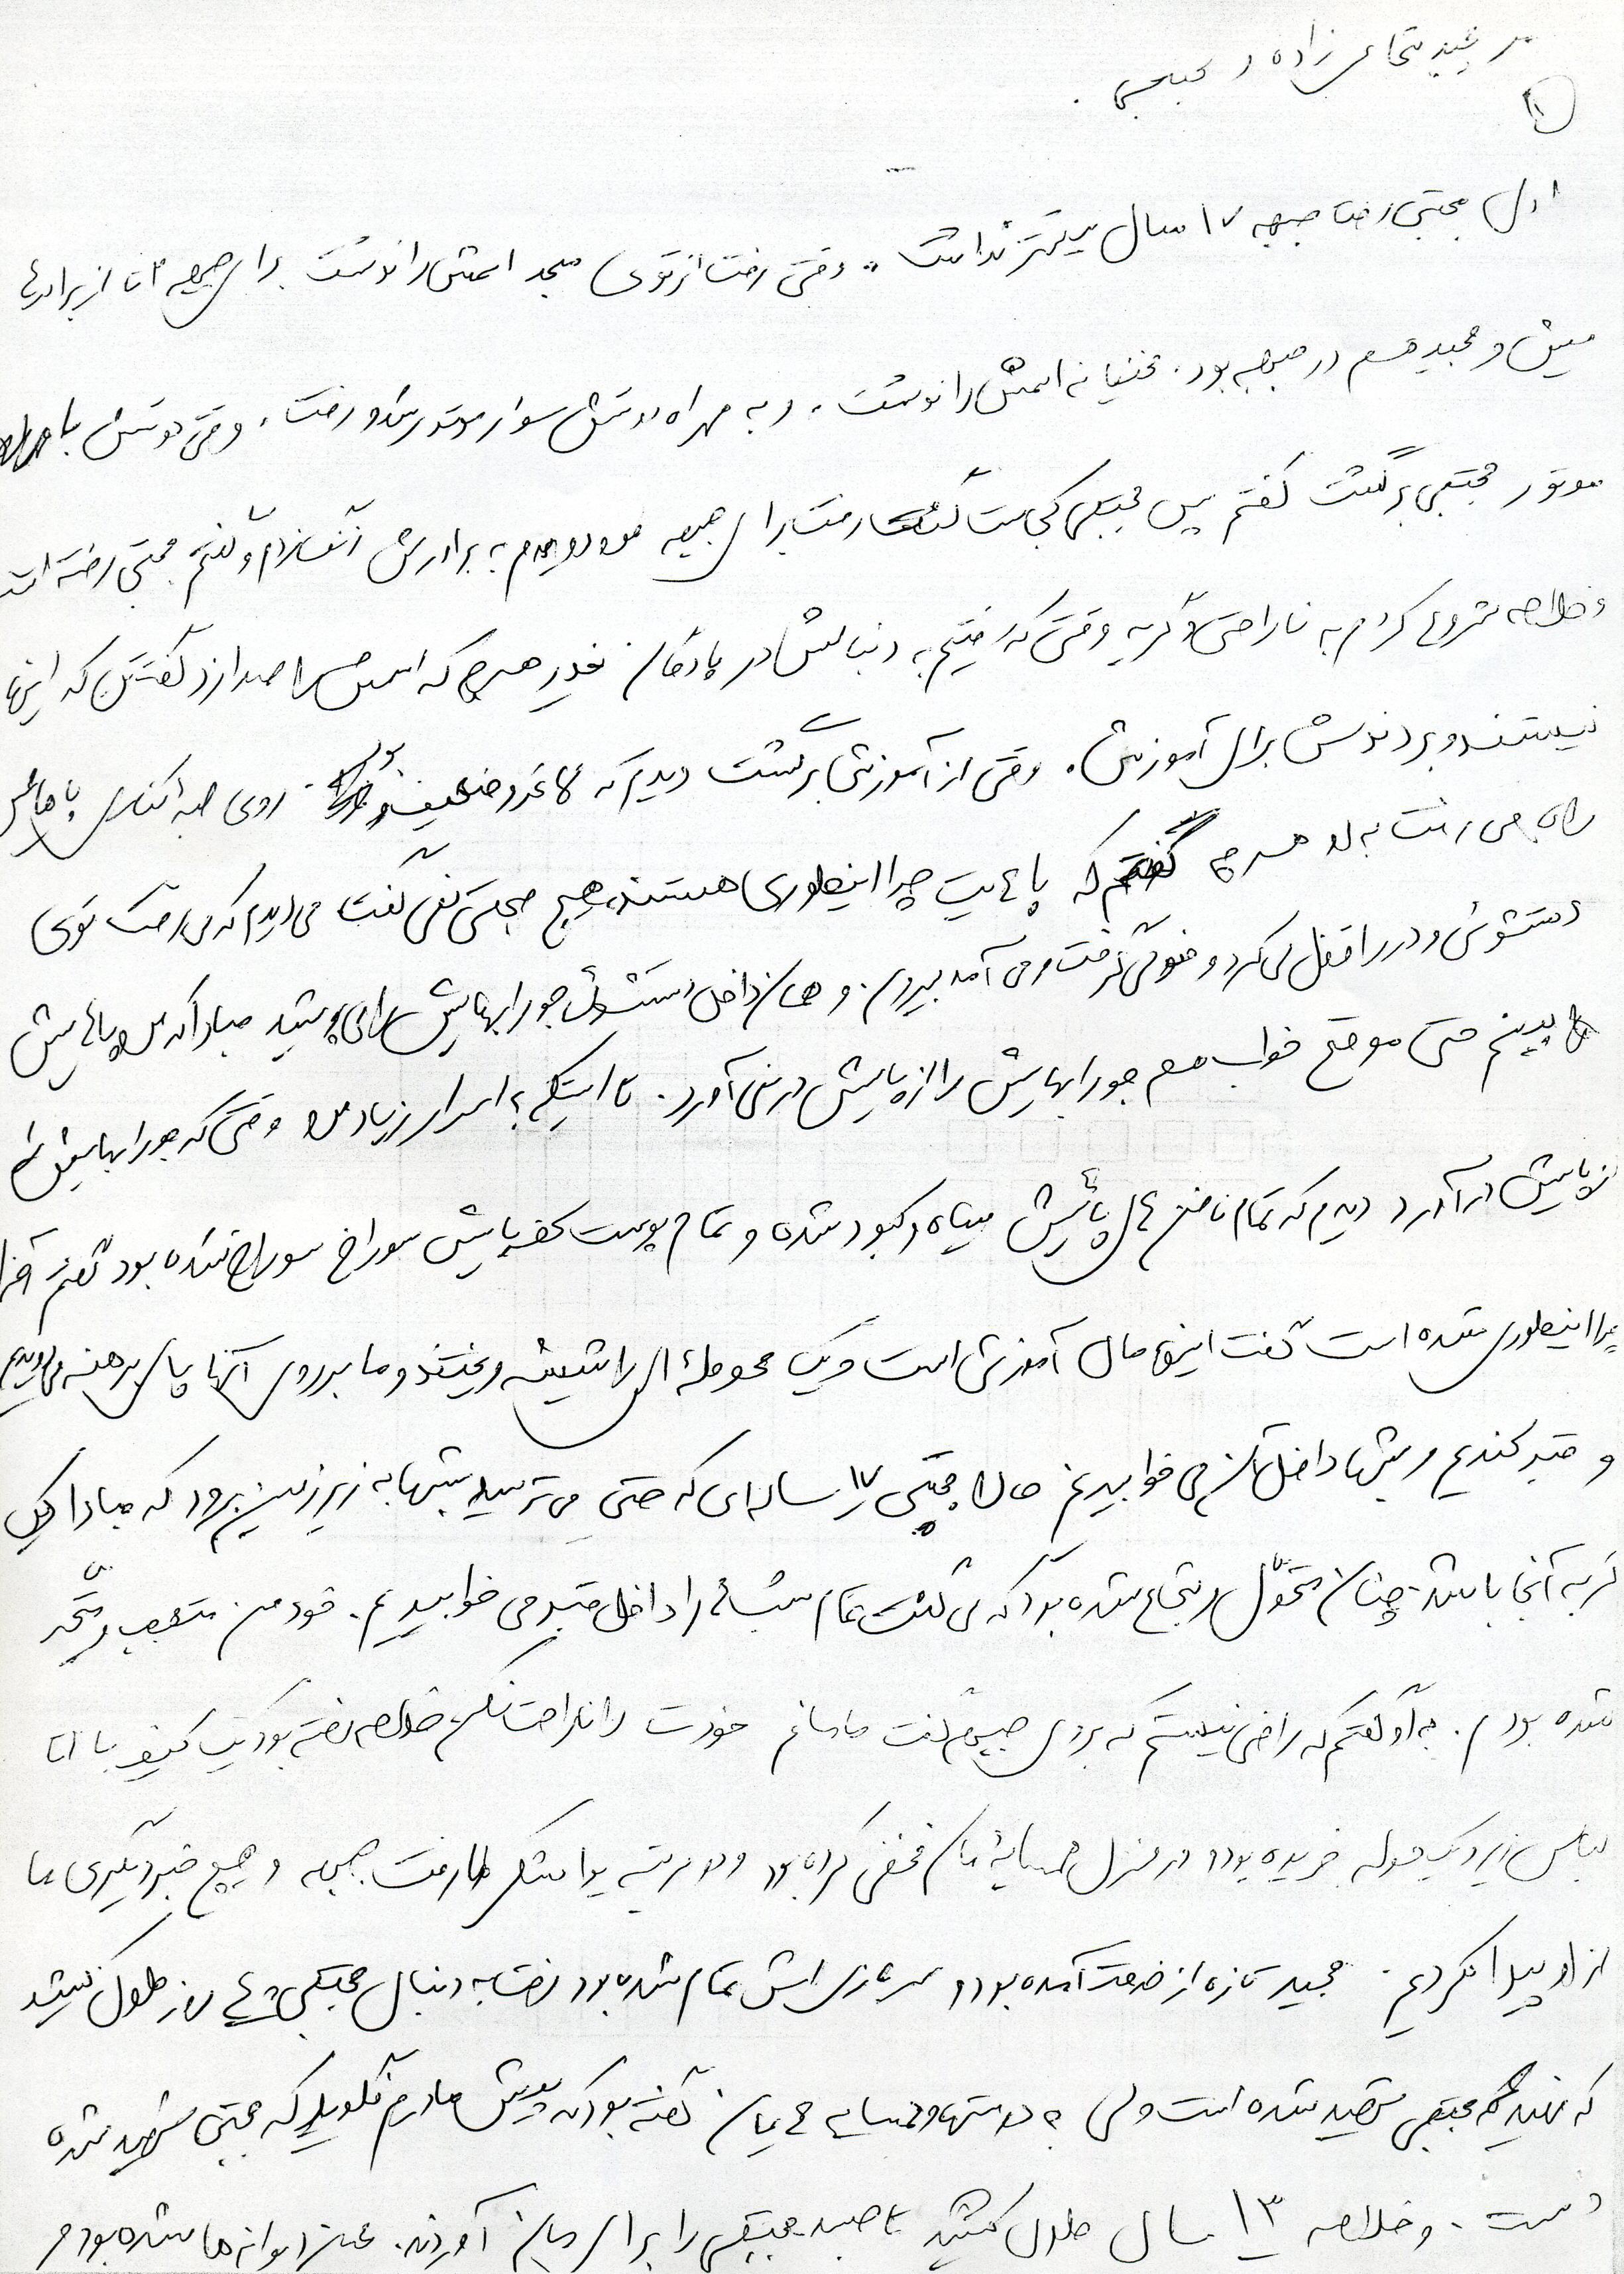 شهید شجاعی زاده / مجتبی .
۱
اول مجتبی رفت جبهه ۱۷ سال بیشتر نداشت . وقتی رفت از توی مسجد اسمش را نوشت برای جبهه اما از برادرها
مجید هم در جبهه بود . مخفیانه اسمش را نوشت . و به همراه دوستش سوار موتور شد و رفت . وقتی دوستش با
موتور مجتبی برگشت گفتم پس مجتبی کجاست گفت رفت برای جبهه به برادرش گفتم مجتبی رفته است
و خلاصه شروع کردم به ناراحتی و گریه وقتی که رفتیم به دنبالش در پادگان هرچه که اسمش را صدا زد گفتن که اینجا
نیستند و بردندش برای آموزش . وقتی از آموزش برگشت دیدم که لاغر و ضعیف بود روی پاهایش
راه می رفت به او هرچه گفتم که پاهایت چرا اینطوری هستند، هیچ گفت می دیدم که می رفت توی
دستشوئی و در را قفل می کرد و وضو می گرفت و می آمد بیرون . و همان داخل دستشوئی جورابهایش را می پوشید مبادا که من پاهایش
را ببینم حتی موقع خواب هم جورابهایش را از پایش در نمی آورد . تا اینکه به اسرار زیاد من وقتی که جورابهایش را
از پایش در آورد دیدم که تمام ناخن های پائیش سیاه و کبود شده و تمام پوست کف پایش سوراخ سوراخ شده بود گفتم آخر
چرا اینطوری شده است گفت اینها مال آموزش است و یک محوطه ای را شیشه ریختند و ما بر روی آنها پای برهنه می دویدیم
و قبر کندیم و شبها داخل آن می خوابیدیم حالا مجتبی ۱۷ ساله ای که حتی می ترسید شبها به زیر زمین برود که مبادا یک
گربه آنجا باشد چنان متحول و شجاع شده بود که می گفت تمام شبها را داخل قبر می خوابیدیم . خود من متعجب و متحیر
شده بودم . به او گفتم که راضی نیستم که بروی جبهه گفت مامان خودت را ناراحت نکن خلاصه رفته بود یک کیف با
لباس زیر و یک حوله خریده بود و در منزل همسایه مان مخفی کرده بود و دو مرتبه یواشکی رفت جبهه و هیچ خبر دیگری ما
از او پیدا نکردیم . مجید تازه از خدمت آمده بود و سربازی اش تمام شده بود رفت به دنبال مجتبی روز طول کشید
که فهمید که مجتبی شهید شده است ولی به دوستها و همسایه هایمان گفته بود که پیش مادرم نگویید که مجتبی شهید شده
است . و خلاصه ۱۳ سال طول کشید تا جسد مجتبی را برای مان آوردند . دیوانه ها شده بودم